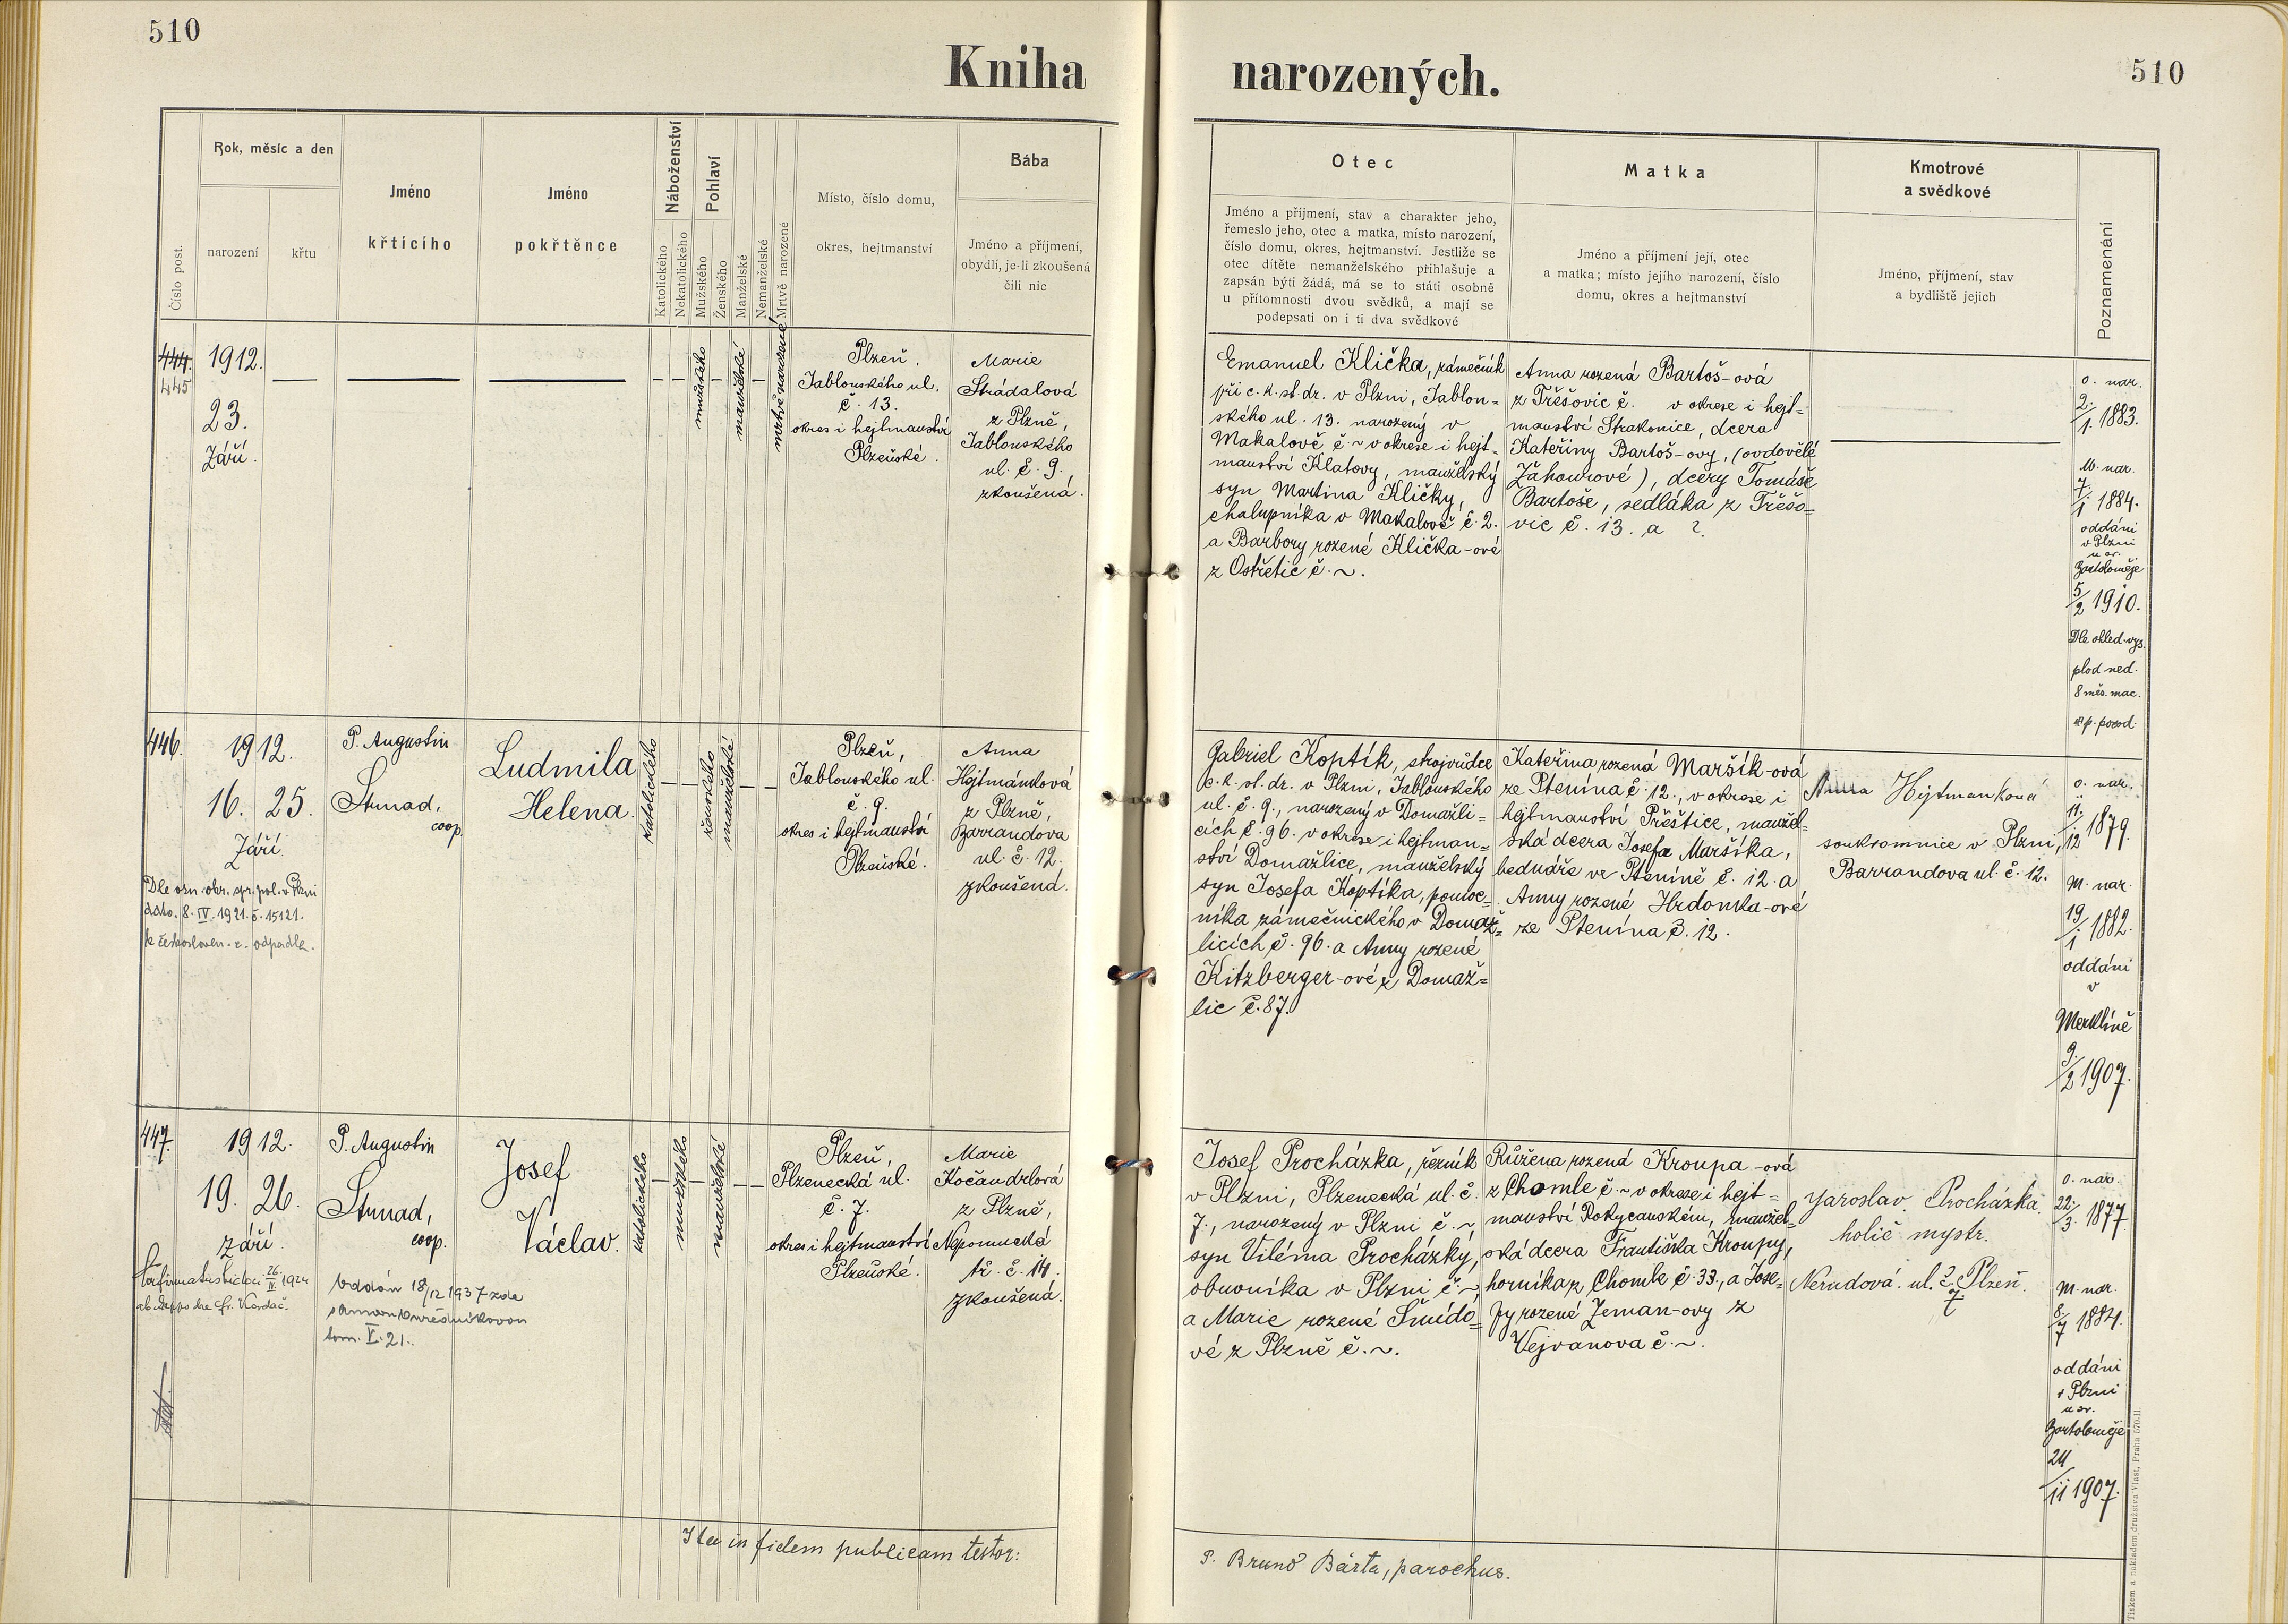 510
Kniha narozených.
510
Číslo post.
Rok, měsíc a den
narození
křtu
Jméno
křtícího
Jméno
pokřtěnce
Náboženství
Katolického
Nekatolického
Pohlaví
Mužského
Ženského
Manželské
Nemanželské
Mrtvě narozené
Místo, číslo domu,
okres, hejtmanství
Bába
Jméno a příjmení,
obydlí, je-li zkoušená
čili nic
Otec
Jméno a příjmení, stav a charakter jeho,
řemeslo jeho, otec a matka, místo narození,
číslo domu, okres, hejtmanství. Jestliže se
otec dítěte nemanželského přihlašuje a
zapsán býti žádá, má se to státi osobně
u přítomnosti dvou svědků, a mají se
podepsati on i ti dva svědkové
Matka
Jméno a příjmení její, otec
a matka; místo jejího narození, číslo
domu, okres a hejtmanství
Kmotrové
a svědkové
Jméno, příjmení, stav
a bydliště jejich
Poznamenání
444.
445
1912.
23.
Září.
mužského
manželské
mrtvě narozené
Plzeň.
Jablonského ul.
č. 13.
okres i hejtmanství
Plzeňské.
Marie
Strádalová
z Plzně,
Jablonského
ul. č. 9.
zkoušená.
Emanuel Klička, zámečník
při c. k. st. dr. v Plzni, Jablon=
ského ul. 13. narozený v
Makalově č. ~ v okrese i hejt=
manství Klatovy, manželský
syn Martina Kličky,
chalupníka v Makalově č. 2.
a Barbory rozené Klička-ové
z Ostřetic č. ~.
Anna rozená Bartoš-ová
z Třešovic č. v okrese i hejt=
manství Strakonice, dcera
Kateřiny Bartoš-ovy, (ovdovělé
Záhourové), dcery Tomáše
Bartoše, sedláka z Třešo=
vic č. 13. a ?.
o. nar.
2./1. 1883.
M. nar.
7./1 1884.
oddáni
v Plzni
u sv.
Bartoloměje
5/2 1910.
Dle ohled. vys.
plod ned.
8 měs. mac.
př. porod.
446.
1912.
16. 25.
Září.
Dle osn. okr. spr. pol. v Plzni
ddto. 8. IV. 1921. č. 15121.
k českosloven. c. odpadla.
P. Augustin
Strnad,
coop.
Ludmila
Helena.
katolického
ženského
manželské
Plzeň,
Jablonského ul.
č. 9.
okres i hejtmanství
Plzeňské.
Anna
Hejtmánková
z Plzně,
Barrandova
ul. č. 12.
zkoušená.
Gabriel Koptík, strojvůdce
c. k. st. dr. v Plzni, Jablonského
ul. č. 9., narozený v Domažli=
cích č. 96. v okrese i hejtman=
ství Domažlice, manželský
syn Josefa Koptíka, pomoc=
níka zámečnického v Domaž=
licích č. 96. a Anny rozené
Kitzberger-ové z Domaž=
lic č. 87.
Kateřina rozená Maršík-ová
ze Ptenína č. 12., v okrese i
hejtmanství Přeštice, manžel=
ská dcera Josefa Maršíka,
bednáře ve Pteníně č. 12. a
Anny rozené Hrdonka-ové
ze Ptenína č. 12.
Anna Hejtmanková
soukromnice v Plzni,
Barrandova ul. č. 12.
o. nar.
11./12 1879.
M. nar.
19/1 1882.
oddáni
v
Merklíně
9./2 1907.
447.
1912.
19. 26.
září.
Confirmatus
P. Augustin
Strnad,
coop.
Oddán 18/12 1937 zde
tom. X. 21.
Josef
Václav.
katolického
mužského
manželské
Plzeň,
Plzenecká ul.
č. 7.
okres i hejtmanství
Plzeňské.
Marie
Kočandrlová
z Plzně,
Nepomucká
tř. č. 14.
zkoušená.
Josef Procházka, řezník
v Plzni, Plzenecká ul. č.
7., narozený v Plzni č. ~,
syn Viléma Procházky,
obuvníka v Plzni č. ~
a Marie rozené Šmído=
vé z Plzně č. ~.
Růžena rozená Kroupa-ová
z Chomle č. ~ v okrese i hejt=
manství Rokycanském, manžel=
ská dcera Františka Kroupy,
horníka z Chomle č. 33., a Jose=
fy rozené Zeman-ovy z
Vejvanova č. ~.
Jaroslav Procházka.
holič mystr.
Nerudová. ul. č. 7 Plzeň.
o. nar.
22./3. 1877.
M. nar.
8./7 1884.
oddáni
v Plzni
u sv.
Bartoloměje
24/11 1907.
Ita in fidem publicam testor:
P. Bruno Bárta, parochus.
Tiskem a nákladem družstva Vlast, Praha 570-II.